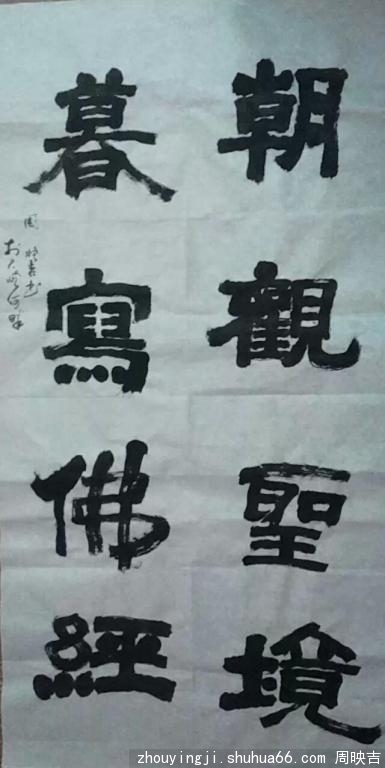 朝觀聖境
暮寫佛經
zhouyingji.shuhua66.com 周映吉